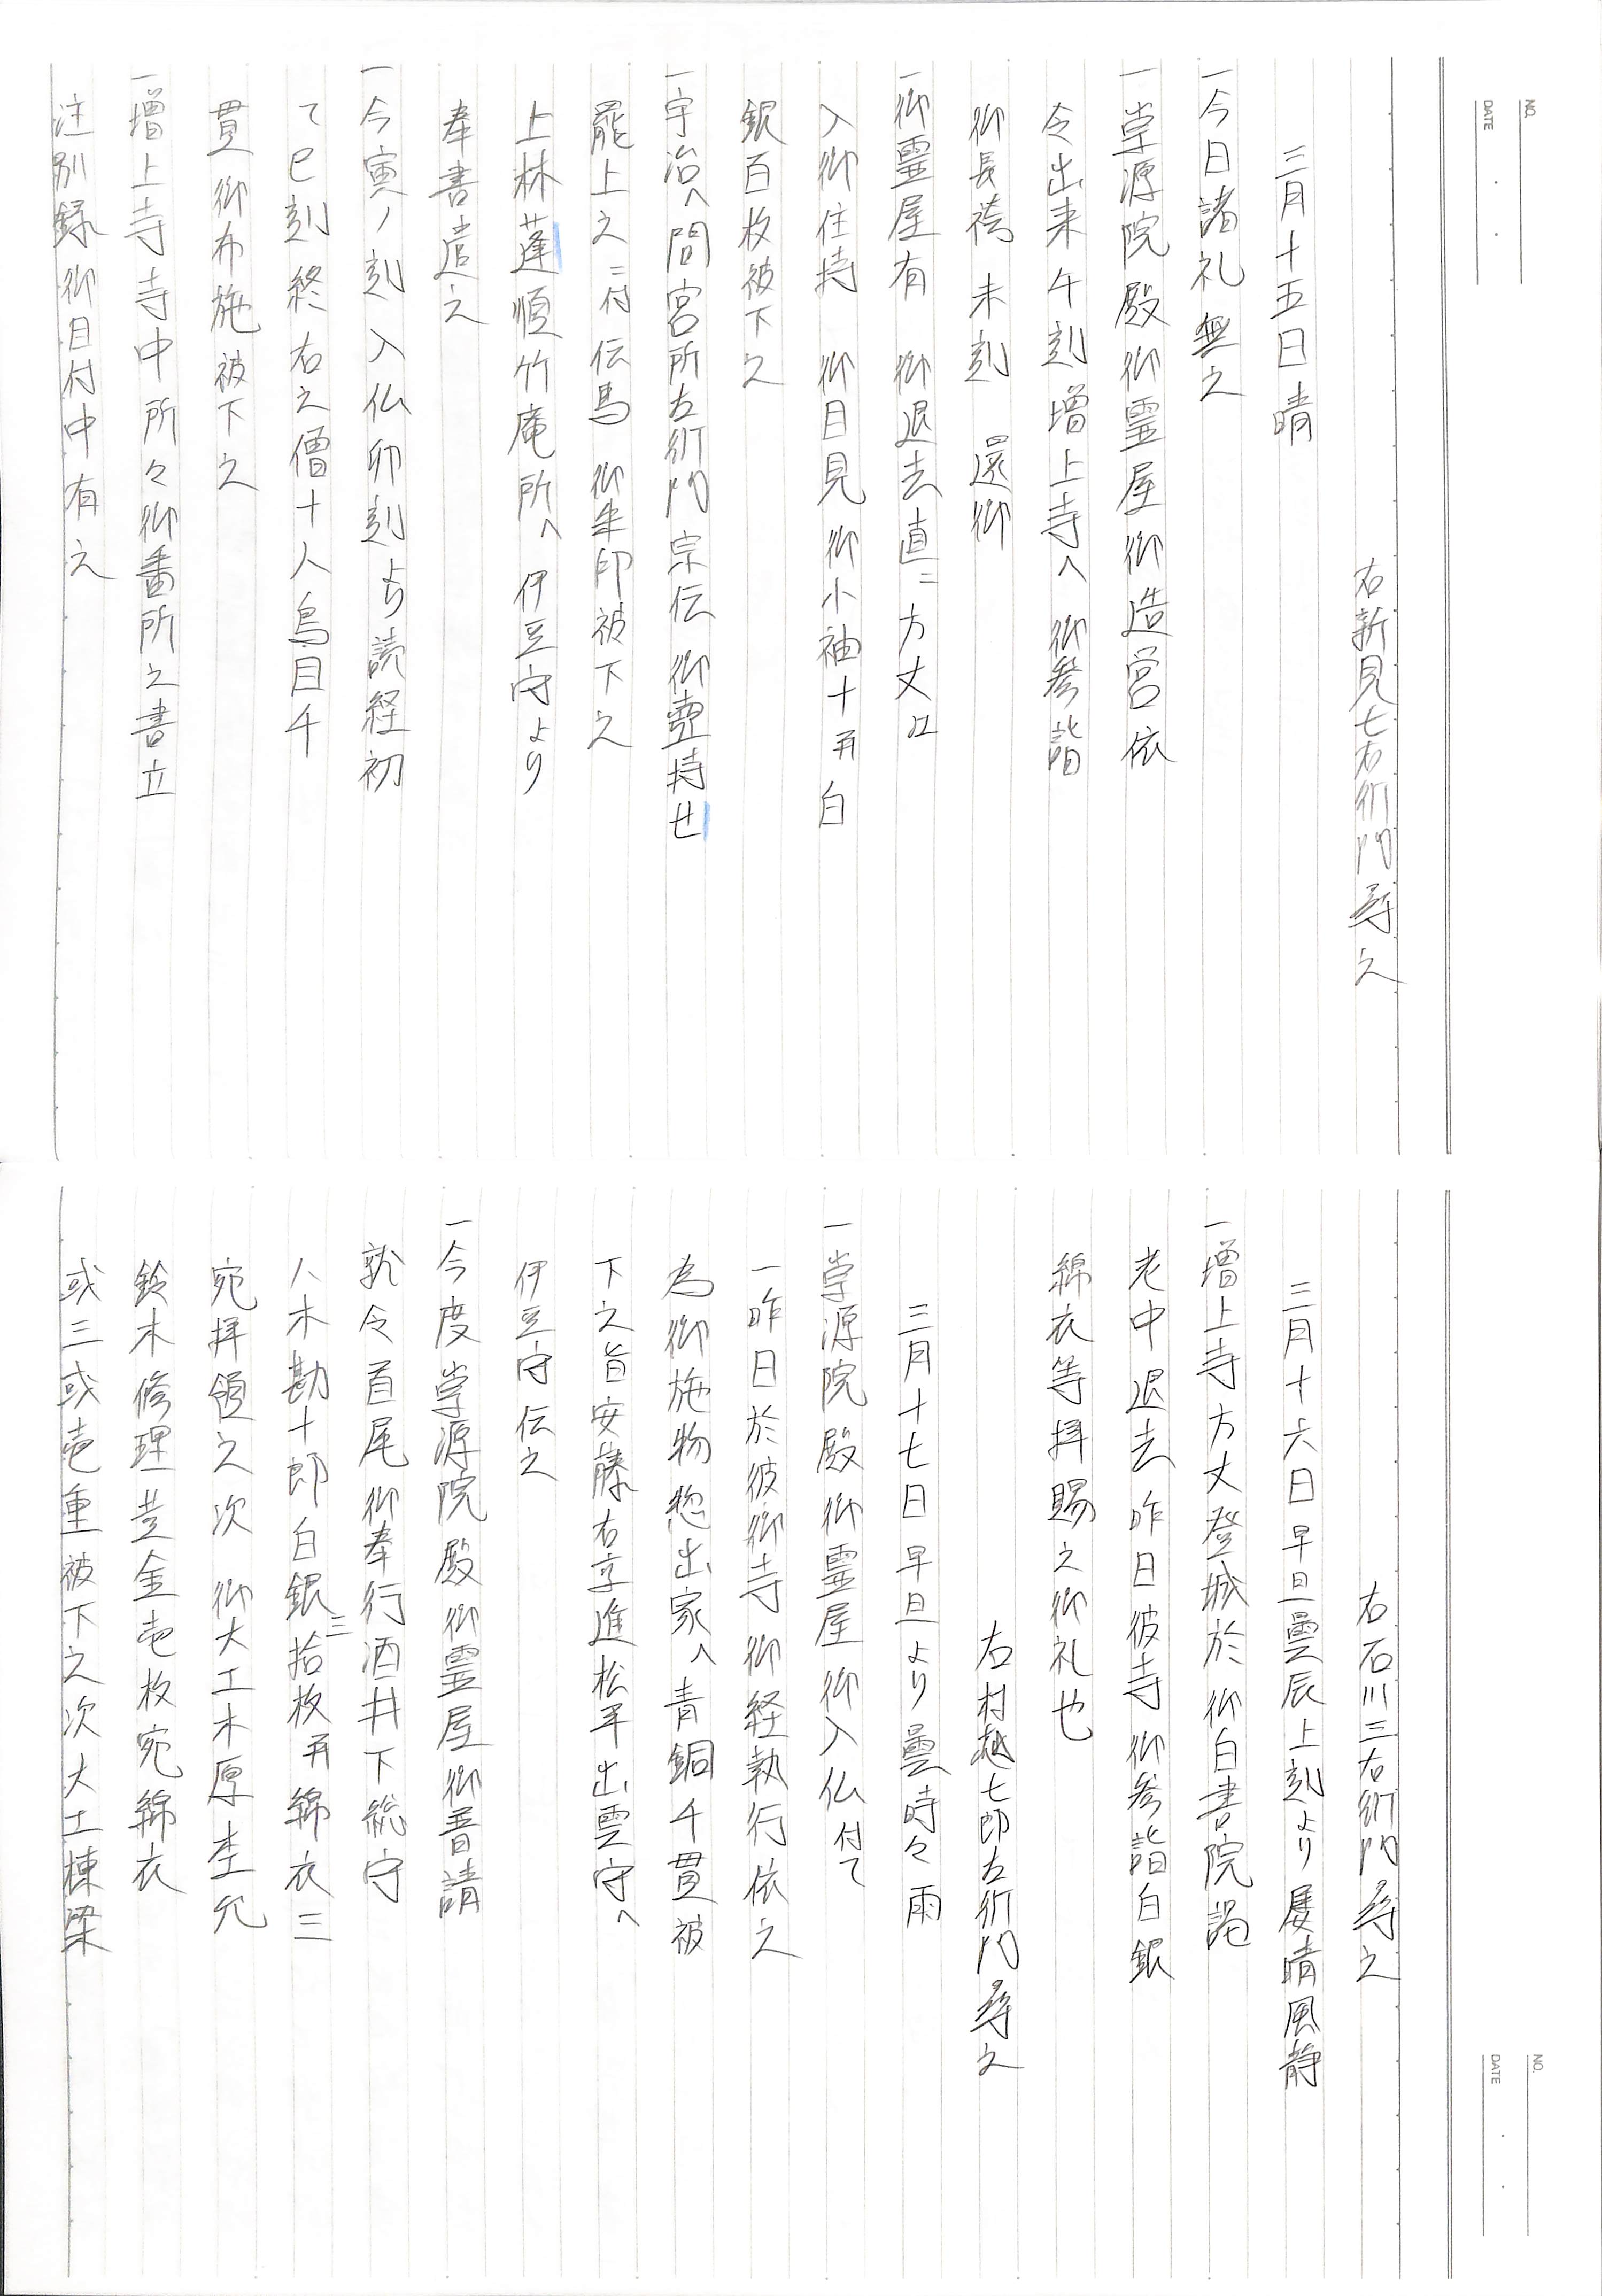 NO.
DATE
右新見七右衛門尋之
三月十五日晴
一今日諸礼無之
一崇源院殿御霊屋御造営依
令出来午刻増上寺へ御参詣
御長袴未刻 還御
一御霊屋有 御退去直ニ方丈江
入御住持 御目見御小袖十再白
銀百枚被下之
一宇治へ間宮所左衛門宗伝御壺持せ
罷上之ニ付伝馬御朱印被下之
上林蓬順竹庵所へ伊豆守より
奉書遣之
一今寅ノ刻入仏卯刻より読経初
て巳刻終右之僧十人鳥目千
貫御布施被下之
一増上寺寺中所々御番所之書立
注別録御目付中有之
NO.
DATE
右石川三右衛門尋之
三月十六日早旦曇辰上刻より屡晴風静
一増上寺方丈登城於御白書院謁
老中退去昨日彼寺御参詣白銀
綿衣等拝賜之御礼也
右村越七郎左衛門尋之
三月十七日早旦より曇時々雨
一崇源院殿御霊屋御入仏付て
一昨日於彼御寺御経執行依之
為御施物惣出家へ青銅千貫被
下之旨安藤右京進松平出雲守へ
伊豆守伝之
一今度崇源院殿御霊屋御普請
就令首尾御奉行酒井下総守
八木勘十郎白銀三拾枚再綿衣三
宛拝領之次御大工木原杢允
鈴木修理黄金壱枚宛綿衣
或三或壱重被下之次大工棟梁